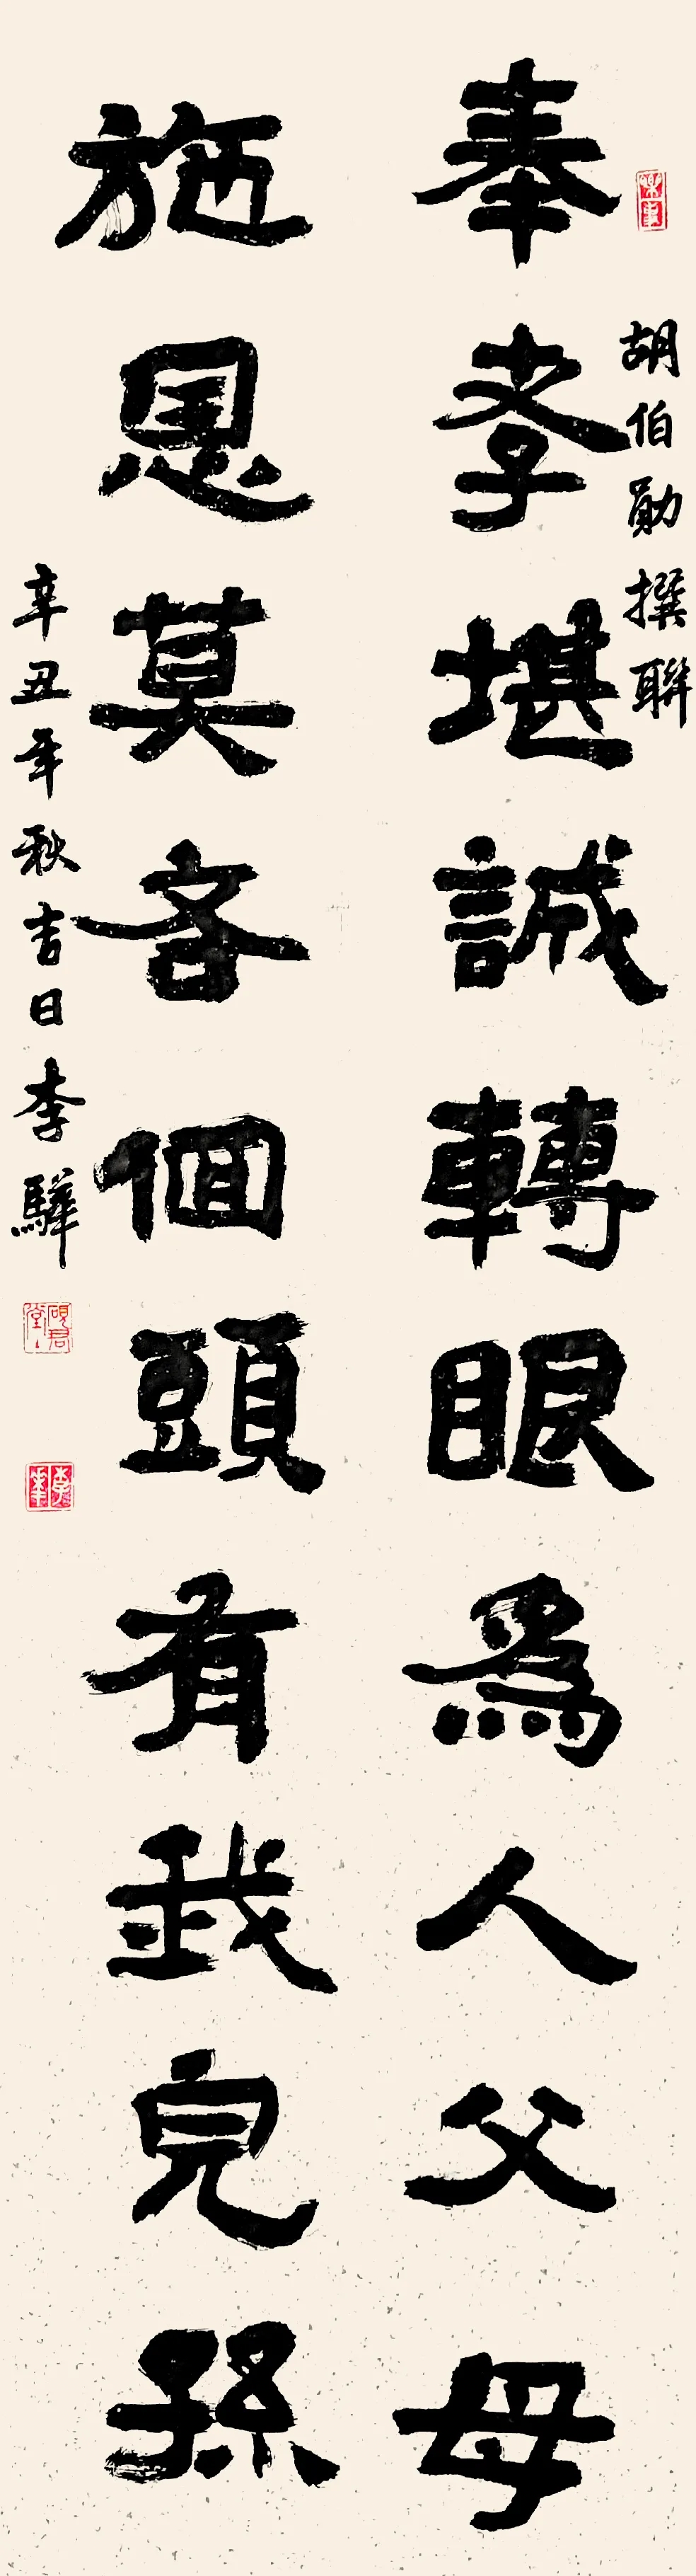 胡伯勛撰聯
奉孝堪誠轉眼爲人父母
施恩莫吝佪頭有我兒孫
辛丑年秋吉日李驊
硯君堂